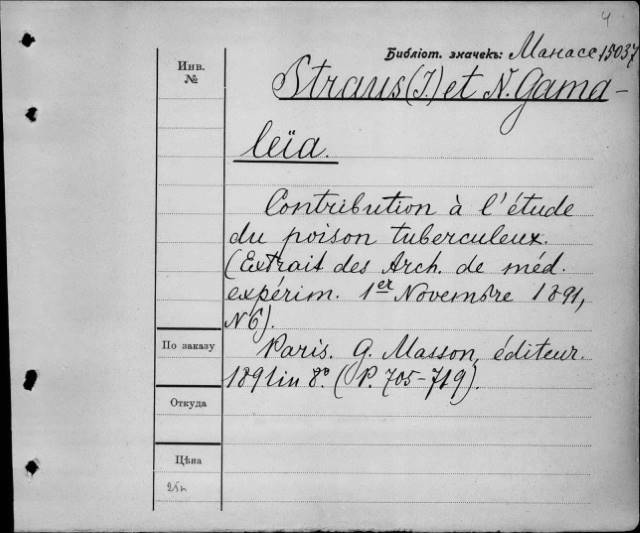 4
Библіот. значекъ: Манасс 15037
Инв.
№
Straus (I.) et N. Gama-
leïa.
Contribution à l'étude
du poison tuberculeux.
(Extrait des Arch. de méd.
expérim. 1er Novembre 1891,
N6).
По заказу
Paris. G. Masson, éditeur.
1891 in 8º. (P. 705-719).
Откуда
Цѣна